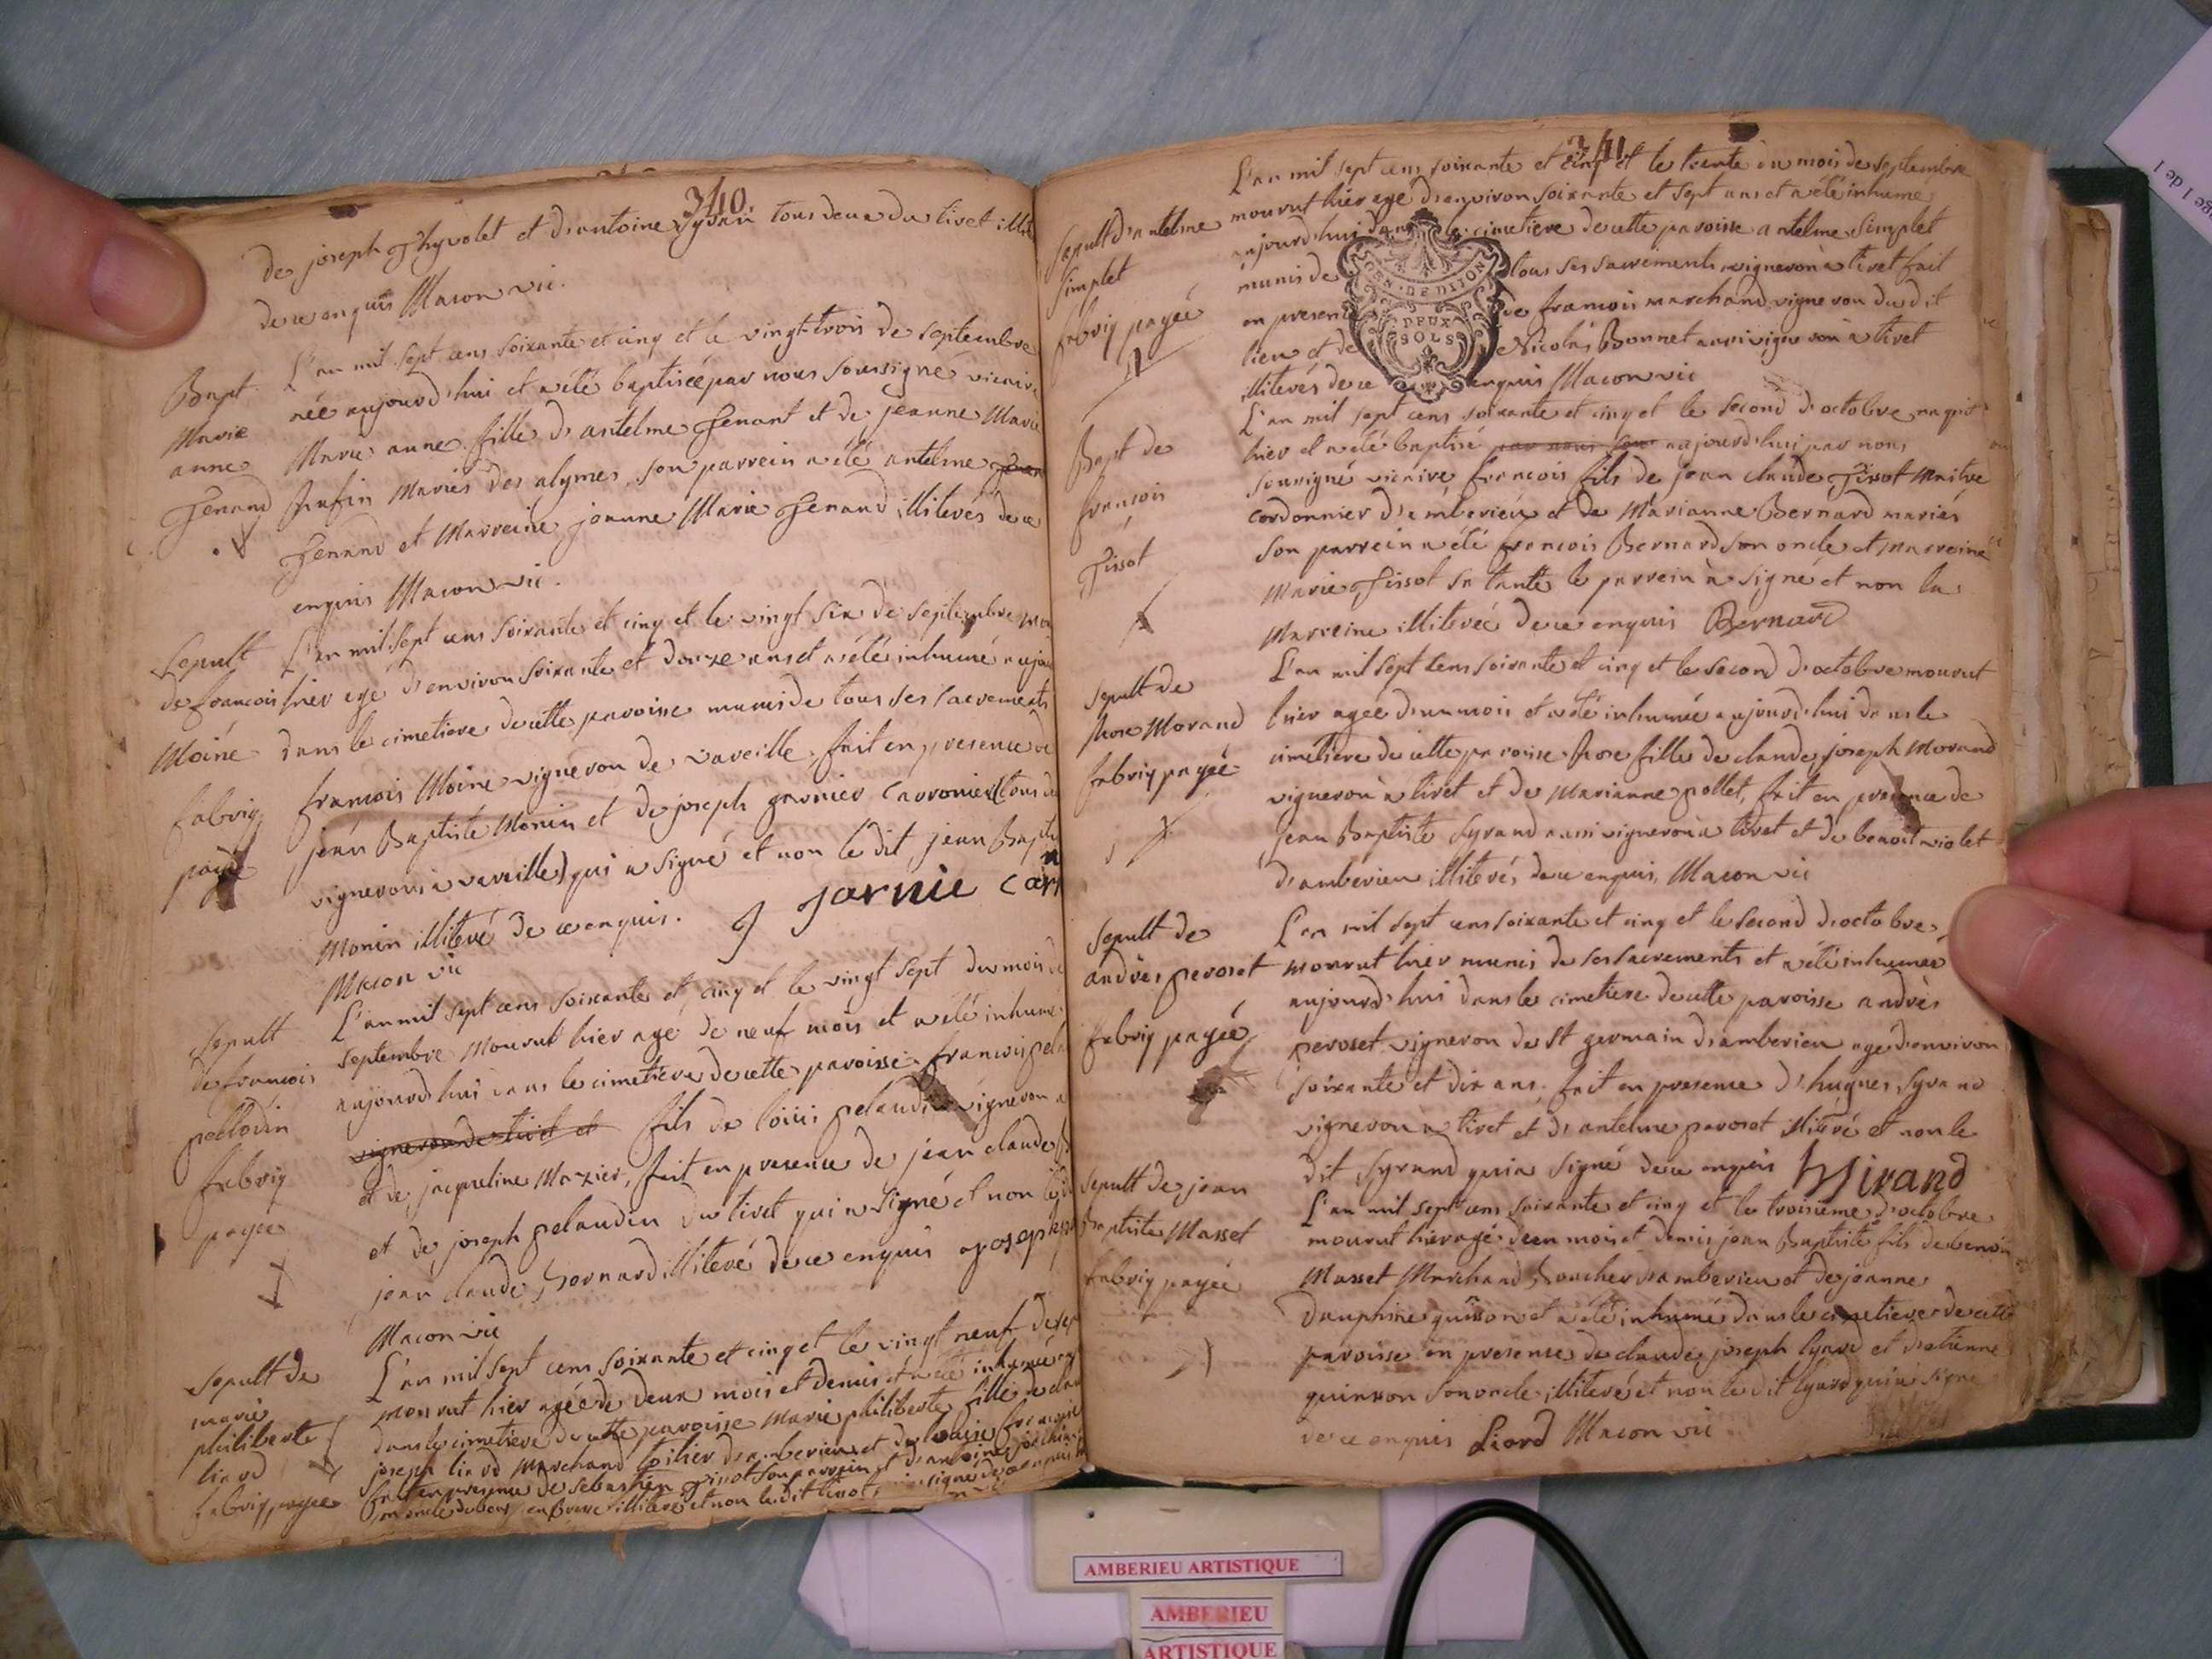 340
de joseph Thyvolet et d'antoine Syran tous deux du tiret
de ce enquis Macon vic.
Bapt
Marie
anne
Tenand
L'an mil sept cens soixante et cinq et le vingt-trois de septembre
née aujourd'hui et a été baptisée par nous soussigné vicaire
Marie anne fille d'antelme Tenant et de jeanne Marie
mariés des alymes, son parrein a été antelme
Tenand et Marreine jeanne Marie Tenand illiterés de ce
enquis Macon vic.
Sepult
de francois
Moine
fabriq
payé
L'an mil sept cens soixante et cinq et le vingt six de septembre
hier agé d'environ soixante et douze ans et a été inhumé
dans le cimetiere de cette paroisse munis de tous ses sacrements
francois Moine vigneron de vareille, fait en presence de
jean Baptiste Monin et de joseph garnier (tous
vignerons a vareille) qui a signé et non le dit jean
Monin illiteré de ce enquis. J garnie
Macon vic
Sepult
de francois
pelodin
fabriq
payée
L'an mil sept cens soixante et cinq et le vingt sept du mois de
septembre mourut hier agé de neuf mois et a été inhumé
aujourd'hui dans le cimetiere de cette paroisse francois
vigneron de tiret et fils de loüis pelaudin vigneron a
et de jacqueline Mazier, fait en presence de jean claude
et de joseph pelaudin du tiret qui a signé et non
jean claude Bornard illiteré de ce enquis joseph
Macon vic
Sepult de
marie
philiberte
liard
fabriq payée
L'an mil sept cens soixante et cinq et le vingt neuf de
mourut hier agée de deux mois et demis et a été inhumée
dans le cimetiere de cette paroisse Marie philiberte fille de
joseph liard Marchand toilier d'amberieu et de
fait en presence de sebastien son parrein et
son oncle illiteré et non le dit
341
Sepult d'antelme
Simplet
fabriq payée
L'an mil sept cens soixante et cinq et le trente du mois de septembre
mourut hier agé d'environ soixante et sept ans et a été inhumé
aujourd'hui dans le cimetiere de cette paroisse antelme Simplet
munis de tous ses sacrements vigneron a tiret fait
en presence de francois marchand vigneron du dit
lieu et de Nicolas Bonnet aussi vigneron a tiret
illiterés de ce enquis Macon vic
DEUX
SOLS
Bapt de
francois
Tissot
L'an mil sept cens soixante et cinq et le second d'octobre naquit
hier et a été baptisé par nous sous aujourd'hui par nous
soussigné vicaire francois fils de jean claude Tissot Maitre
cordonnier d'amberieu et de Marianne Bernard mariés
son parrein a été francois Bernard son oncle et marreine
Marie Tissot sa tante le parrein a signé et non la
Marreine illiterée de ce enquis Bernard
Sepult de
Rose Morand
fabriq payée
L'an mil sept cens soixante et cinq et le second d'octobre mourut
hier agée d'un mois et a été inhumée aujourd'hui dans le
cimetiere de cette paroisse Rose fille de claude joseph Morand
vigneron a tiret et de Marianne pollet, fait en presence de
jean Baptiste Syrand aussi vigneron a tiret et de benoit violet
d'amberieu illiterés de ce enquis, Macon vic
Sepult de
andrés peroset
fabriq payée
L'an mil sept cens soixante et cinq et le second d'octobre
mourut hier munis de ses sacrements et a été inhumé
aujourd'hui dans le cimetiere de cette paroisse andrés
peroset vigneron de St germain d'amberieu agé d'environ
soixante et dix ans. fait en presence d'hugues Syrand
vigneron a tiret et d'antelme peroset illiteré et non le
dit Syrand qui a signé de ce enquis hsirand
Sepult de jean
Baptiste Masset
fabriq payée
L'an mil sept cens soixante et cinq et le troisieme d'octobre
mourut hier agé d'un mois et demis jean Baptiste fils de benoit
Masset Marchand Boucher d'amberieu et de jeanne
Dauphine guinson et a été inhumé dans le cimetiere de cette
paroisse en presence de claude joseph lyard et d'etienne
guinson son oncle illiteré et non le dit lyard qui a signé
de ce enquis Liard Macon vic
AMBERIEU ARTISTIQUE
AMBERIEU
ARTISTIQUE